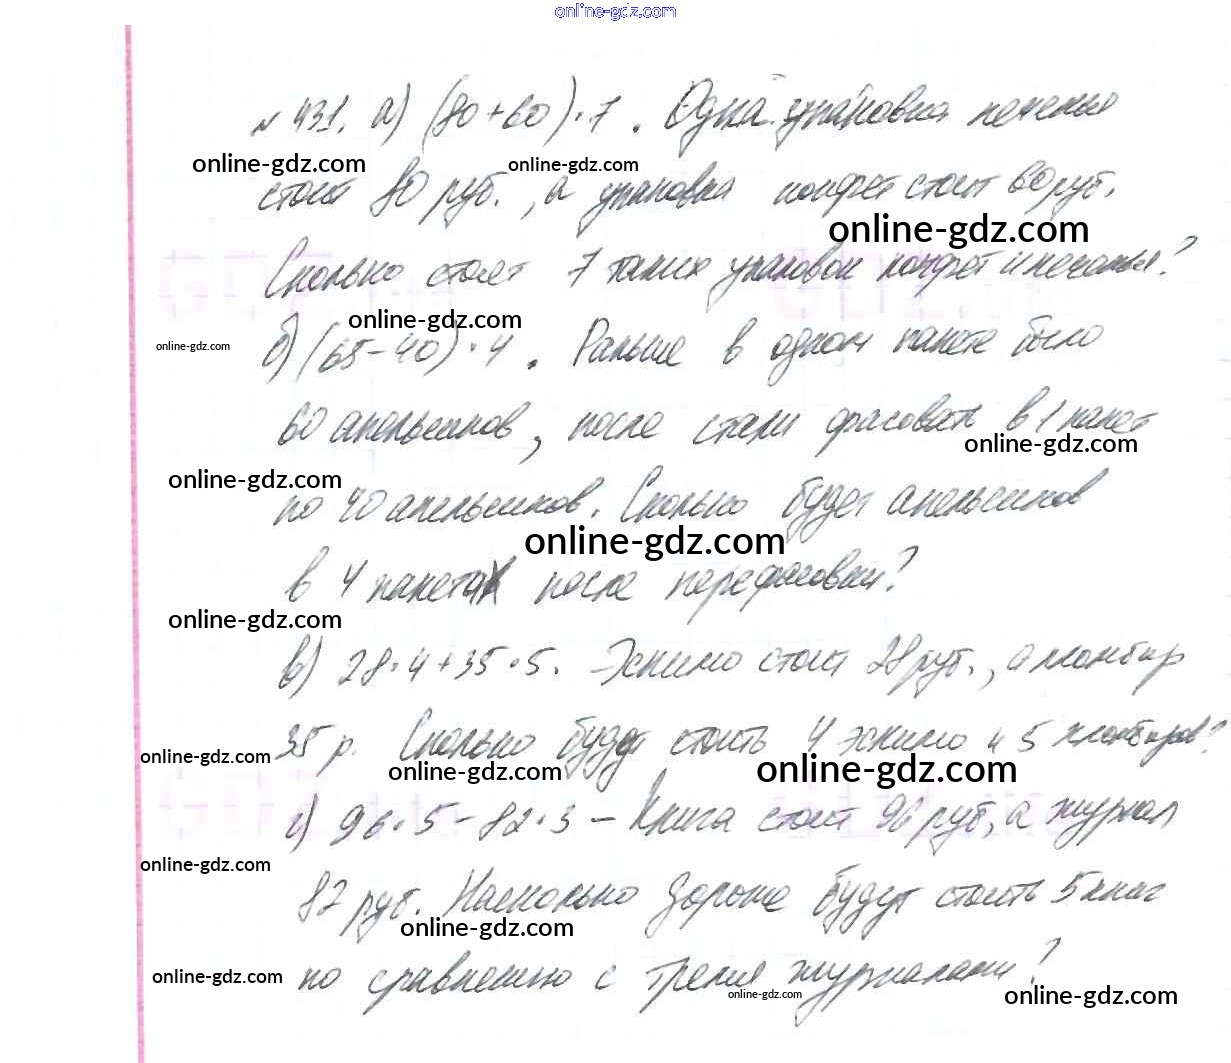 online-gdz.com
№ 431. а) (80+60)·7. Одна упаковка печенья
online-gdz.com online-gdz.com
стоит 80 руб., а упаковка конфет стоит 60 руб.
online-gdz.com
Сколько стоят 7 таких упаковок конфет и печенья?
online-gdz.com
online-gdz.com
б) (65-40)·4. Раньше в одном пакете было
60 апельсинов, после стали фасовать в 1 пакет
online-gdz.com
online-gdz.com
по 40 апельсинов. Сколько будет апельсинов
online-gdz.com
в 4 пакетах после перефасовки?
online-gdz.com
в) 28·4+35·5. Эскимо стоит 28 руб., а пломбир
35 р. Сколько будут стоить 4 эскимо и 5 пломбиров?
online-gdz.com online-gdz.com online-gdz.com
г) 96·5-82·3 – Книга стоит 96 руб, а журнал
online-gdz.com
82 руб. Насколько дороже будут стоить 5 книг
online-gdz.com
по сравнению с тремя журналами?
online-gdz.com online-gdz.com online-gdz.com